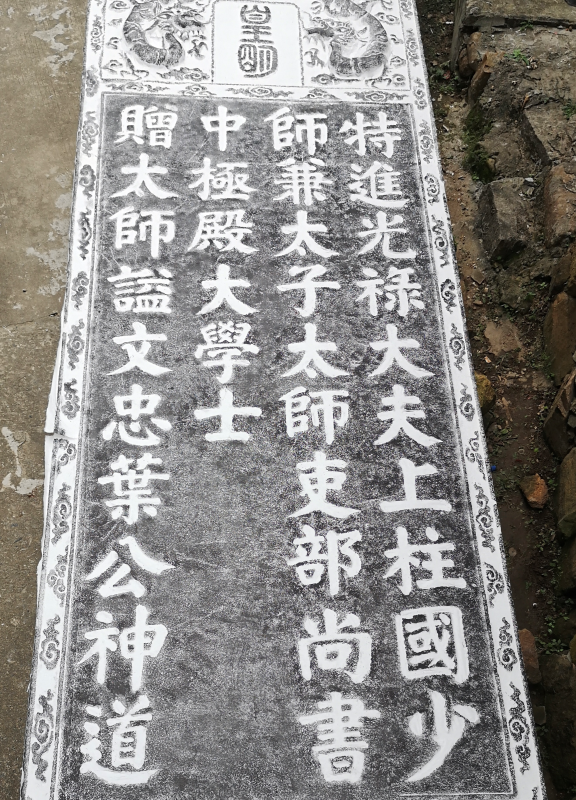 皇明
特進光祿大夫上柱國少
師兼太子太師吏部尚書
中極殿大學士
贈太師謚文忠葉公神道